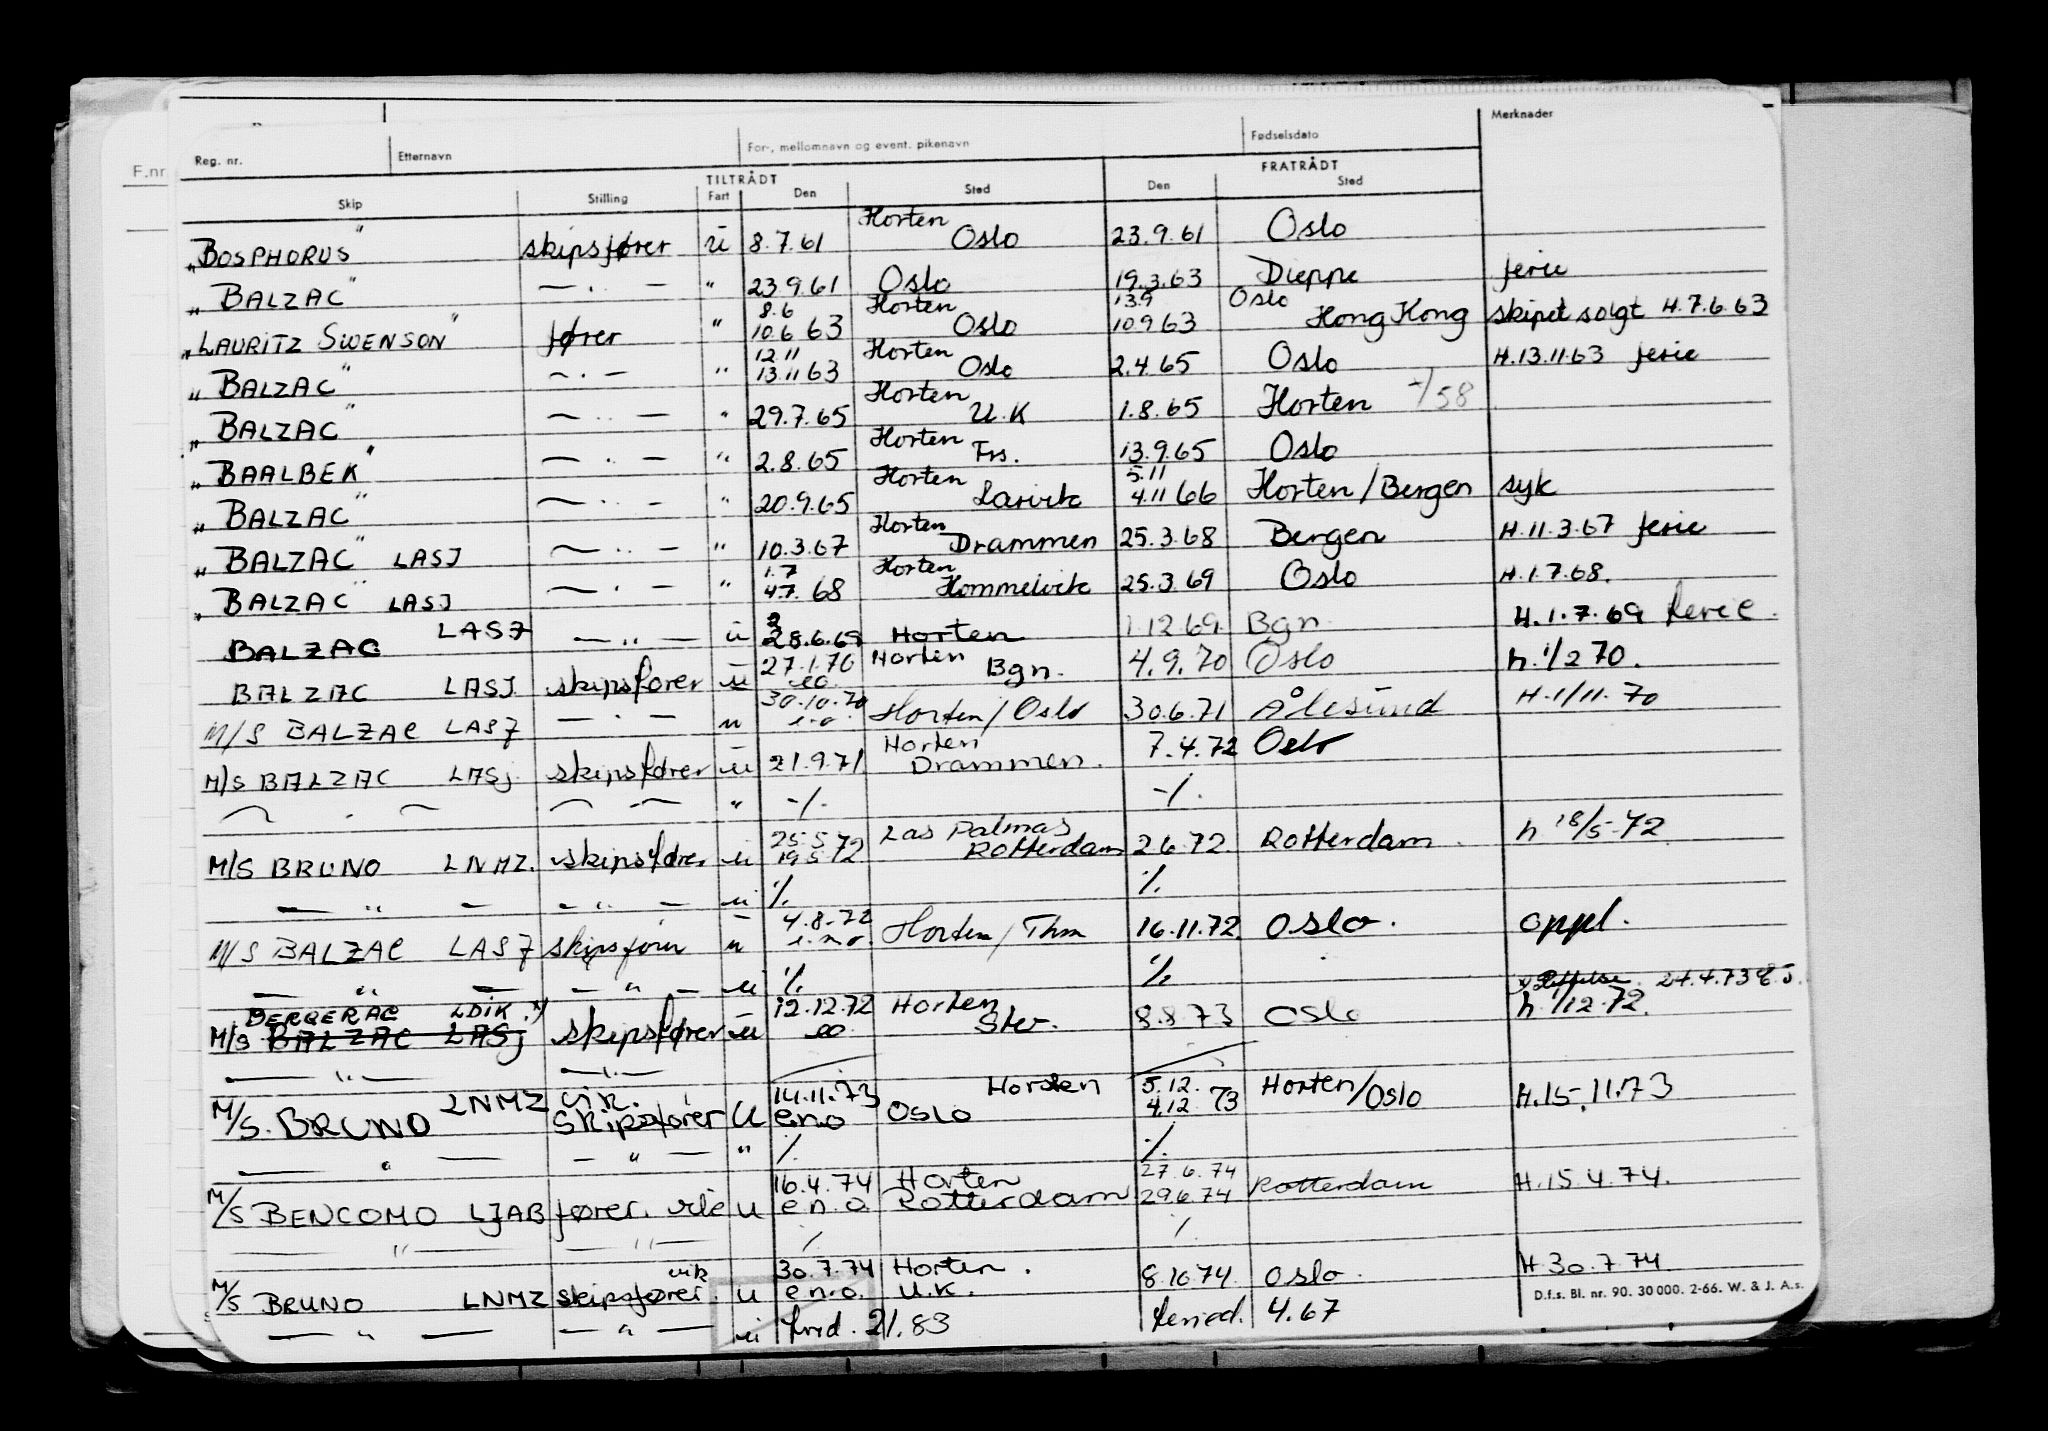 F.nr
Reg. nr. Etternavn For-, mellomnavn og event. pikenavn Fødselsdato Merknader
TILTRÅDT FRATRÅDT
Skip Stilling Fart Den Sted Den Sted
Horten
„BOSPHORUS" skipsfører u 8.7.61 Oslo 23.9.61 Oslo
„BALZAC" — . — " 23.9.61 Oslo 19.3.63 Dieppe ferie
8.6 Horten 13.9 Oslo
„LAURITZ SWENSON" fører " 10.6 63 Oslo 10.9 63 Hong Kong skipet solgt H.7.6.63
12.11 Horten
„BALZAC" — . — " 13.11 63 Oslo 2.4.65 Oslo H.13.11.63 ferie
Horten
„BALZAC" — .. — " 29.7.65 U.K 1.8.65 Horten -/58
Horten
„BAALBEK" — . — " 2.8.65 Frs. 13.9.65 Oslo
Horten 5.11
„BALZAC" — . — " 20.9.65 Larvik 4.11 66 Horten/Bergen syk
Horten
„BALZAC" LASJ — .. — " 10.3.67 Drammen 25.3.68 Bergen H.11.3.67 ferie
1.7 Horten
„BALZAC" LASJ — . — " 4.7. 68 Hommelvik 25.3.69 Oslo H.1.7.68.
BALZAC LASJ — " — u 28.6.69 Horten 1.12.69. Bgn H.1.7.69 ferie.
27.1.70 Horten
BALZAC LASJ skipsfører u eo Bgn. 4.9.70 Oslo h.1/2 70.
30.10.70
M/S BALZAC LASJ — . — u e.o. Horten/Oslo 30.6.71 Ålesund H.1/11.70
Horten
M/S BALZAC LASJ skipsfører u 21.9.71 Drammen. 7.4.72 Oslo
— . — — . — " -/. -/.
25.5 Las Palmas
M/S BRUNO LNMZ. skipsfører u 19.5 72 Rotterdam 2.6.72. Rotterdam. h.18/5-72
— " — — " — u /. /.
4.8.72
M/S BALZAC LASJ skipsfører u e.n.o. Horten/Thm 16.11.72. Oslo. oppl.
— " — — " — u /. /.
24.4.73
BERGERAC LDIK. x) 12.12.72 Horten
M/S BALZAC LASJ skipsfører u eo Stv. 8.8.73 Oslo h.1/12.72.
— " — — . —
LNMZ vik. 14.11.73 Horten 5.12.
M/S. BRUNO skipsfører U e.n.o Oslo 4.12 73 Horten/Oslo H.15.11.73
— " — — " — " /. -/.
16.4.74 Horten 27.6.74
M/S BENCOMO LJAB fører. vik U e.n.o. Rotterdam 29.6.74 Rotterdam H.15.4.74.
— " — — " — /. /.
vik 30.7.74 Horten.
M/S BRUNO LNMZ skipsfører. U e.n.o. U.K. 8.10.74. Oslo. H 30.7.74
— " — — " — u 21.83 4.67
D.f.s. Bl. nr. 90. 30 000. 2-66. W. & J. A.s.